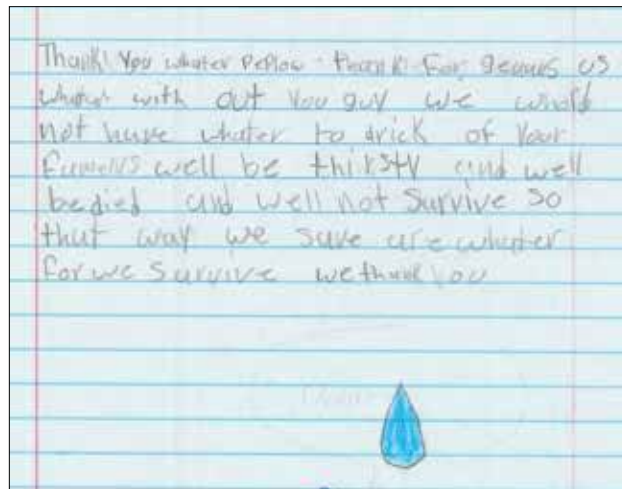 Thank You whater peplow thank for geuus us
whater with out you guy we whold
not have whater to drick of your
famelis well be thirsty and well
be died and well not Survive so
that way we save are whater
for we survive we thank you